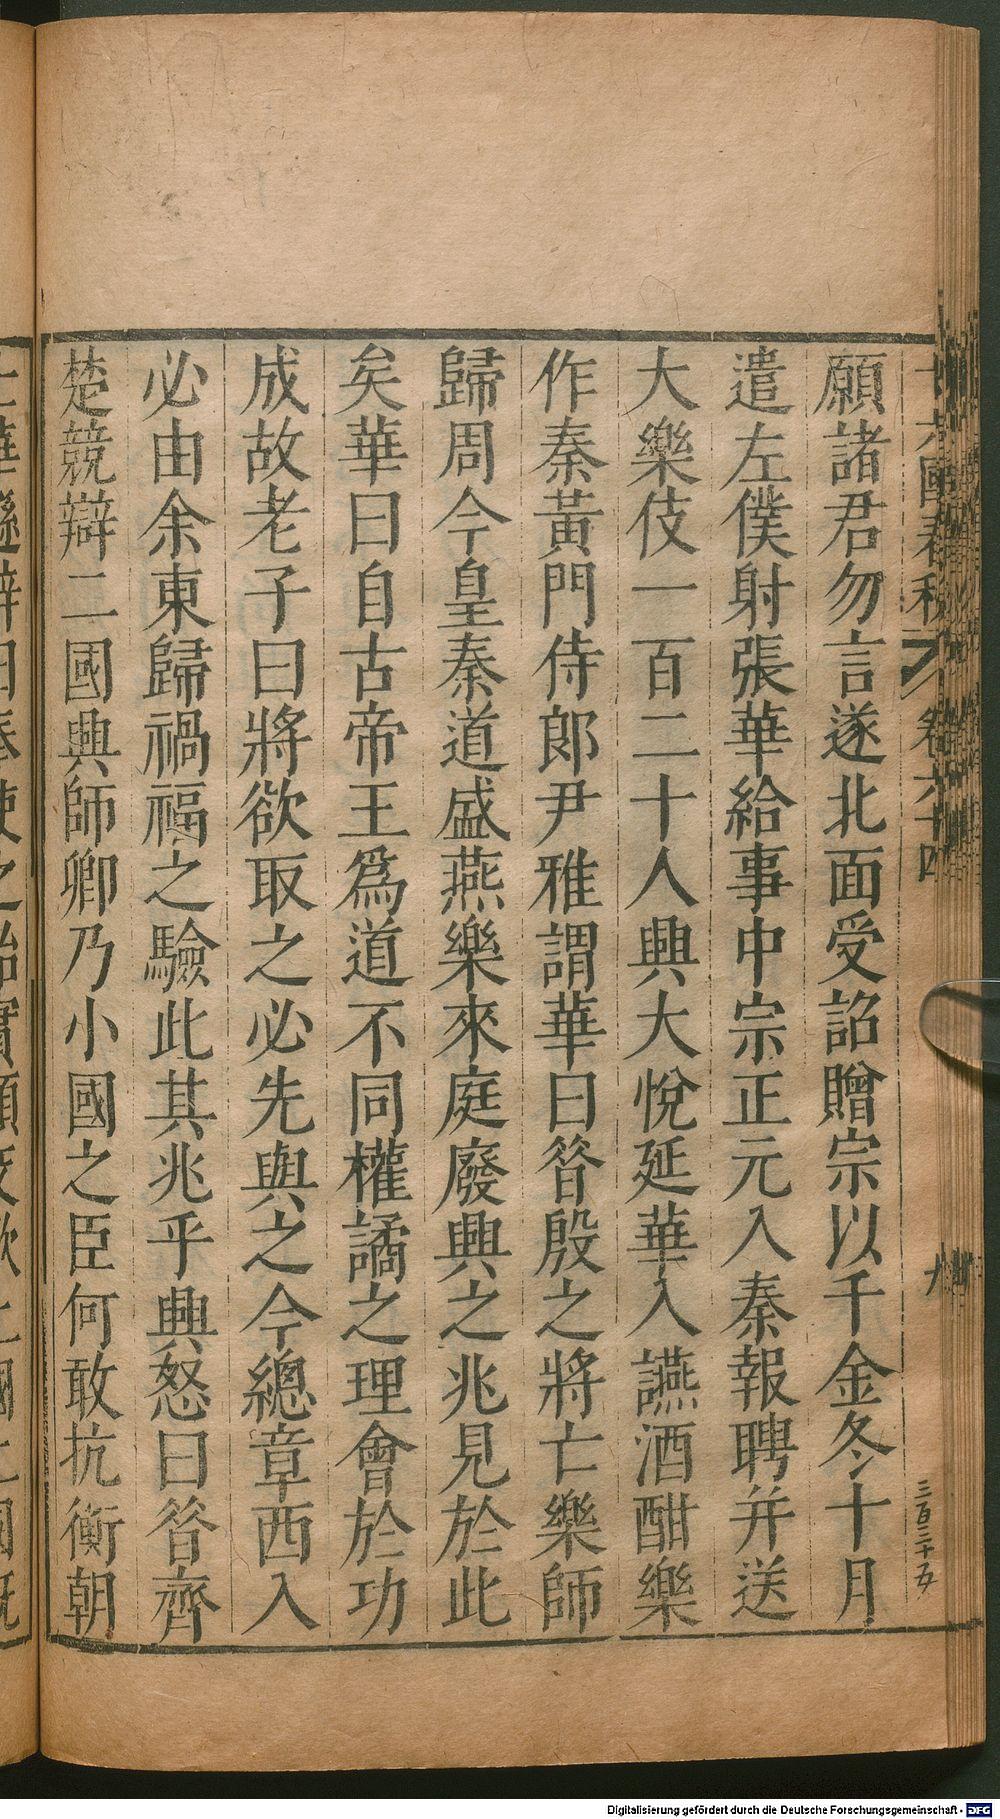 願諸君勿言遂北面受詔贈宗以千金冬十月
遣左僕射張華給事中宗正元入秦報聘并送
大樂伎一百二十人興大悅延華入讌酒酣樂
作秦黃門侍郎尹雅謂華曰昝殷之將亡樂師
歸周今皇秦道盛燕樂來庭廢興之兆見於此
矣華曰自古帝王爲道不同權譎之理會於功
成故老子曰將欲取之必先與之今總章西入
必由余東歸禍福之驗此其兆乎興怒曰昝齊
楚競辯二國興師卿乃小國之臣何敢抗衡朝
十六國春秋 卷六十四
三百二十五
Digitalisierung gefördert durch die Deutsche Forschungsgemeinschaft - DFG